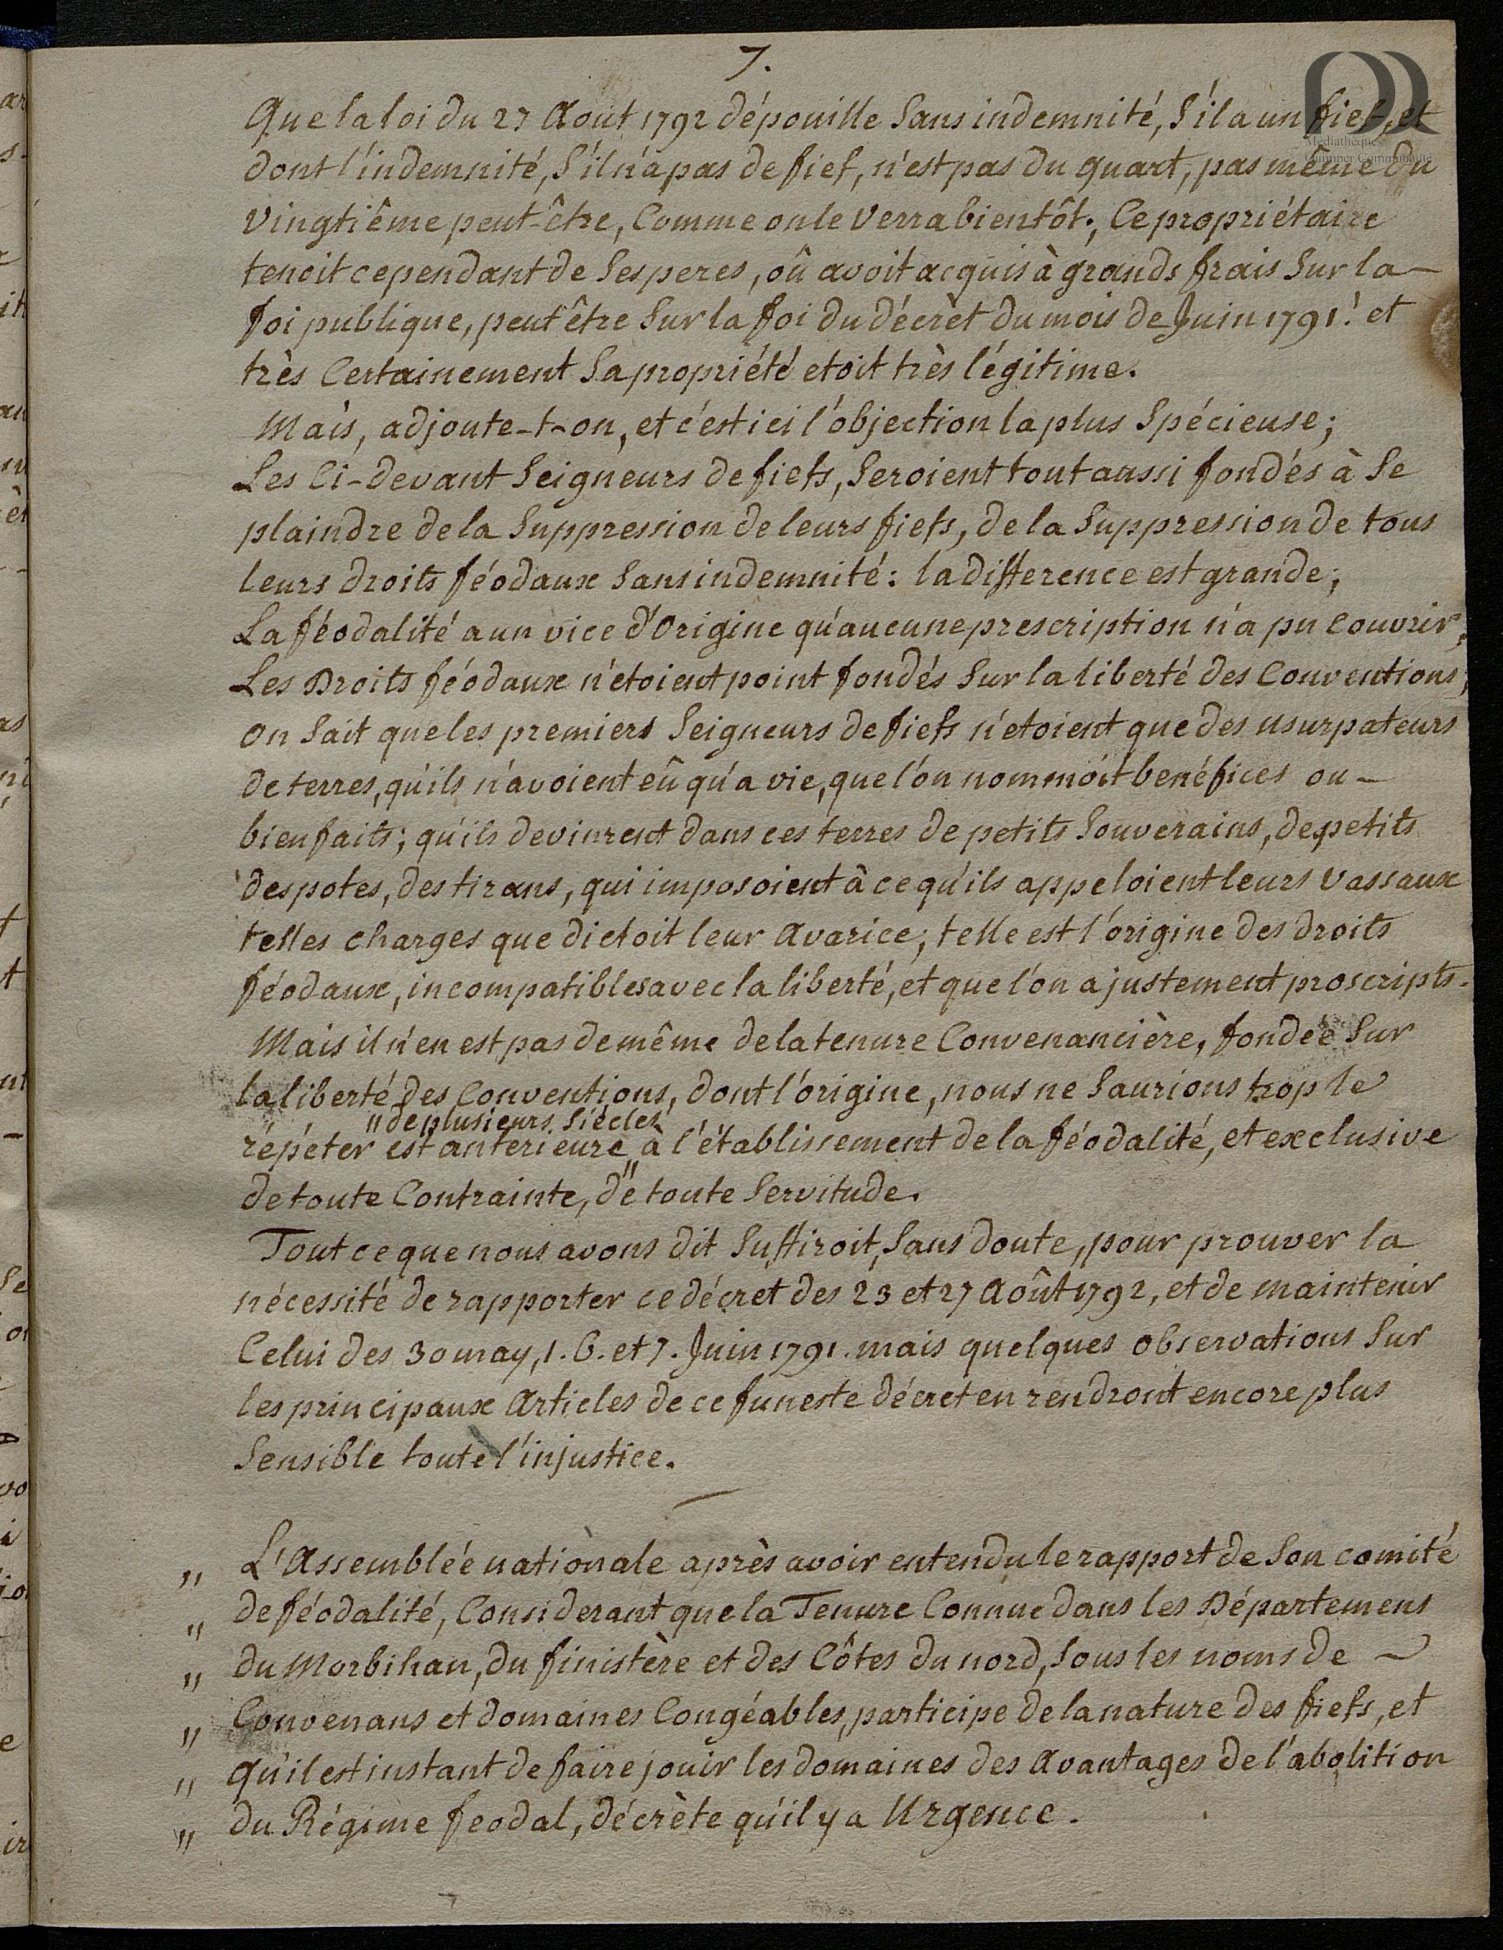 7.
Que la loi du 27 Août 1792 dépouille Sans indemnité, S'il a un fief, et
dont l'indemnité, S'il n'a pas de fief, n'est pas du quart, pas même du
vingtiême peut-être, Comme on le Verra bientôt; Ce propriétaire
tenoit cependant de Ses peres, oû avoit acquis à grands frais Sur la
foi publique, peut être Sur la foi du décrèt du mois de Juin 1791! et
très Certainement Sa propriété etoit très légitime.
Mais, adjoute-t-on, et c'est ici l'objection la plus Spécieuse;
Les Ci-devant Seigneurs de fiefs, Seroient tout aussi fondés à Se
plaindre de la Suppression de leurs fiefs, de la Suppression de tous
leurs droits féodaux Sans indemnité: la différence est grande;
La féodalité a un vice d'Origine qu'aucune prescription n'a pu Couvrir,
Les Droits féodaux n'étoient point fondés Sur la liberté des Conventions;
On Sait que les premiers Seigneurs de fiefs n'etoient que des usurpateurs
de terres, qu'ils n'avoient eû qu'a vie, que l'on nommoit benéfices ou
bienfaits; qu'ils devinrent dans ces terres de petits Souverains, de petits
despotes, des tirans, qui imposoient à ce qu'ils appeloient leurs Vassaux
telles charges que dictoit leur Avarice; telle est l'origine des droits
féodaux, incompatibles avec la liberté, et que l'on a justement proscripts.
Mais il n'en est pas de même de la tenure Convenancière, fondée Sur
la liberté des Conventions, dont l'origine, nous ne Saurions trop le
" de plusieurs Siécles
répéter est antérieure " à l'établissement de la féodalité, et exclusive
de toute Contrainte, de toute Servitude.
Tout ce que nous avons dit Suffiroit, Sans doute, pour prouver la
nécessité de rapporter ce décret des 23 et 27 Août 1792, et de maintenir
Celui des 30 may, 1. 6. et 7. Juin 1791. mais quelques observations Sur
les principaux Articles de ce funeste décret en rendront encore plus
Sensible toute l'injustice.
" L'Assemblée nationale après avoir entendu le rapport de Son comité
" de féodalité, Considerant que la Tenure Connue dans les Départemens
" du Morbihan, du finistère et des Côtes du nord, Sous les noms de
" Convenans et domaines Congéables, participe de la nature des fiefs, et
" qu'il est instant de faire jouir les domaines des Avantages de l'abolition
" du Régime feodal, décrète qu'il y a Urgence.